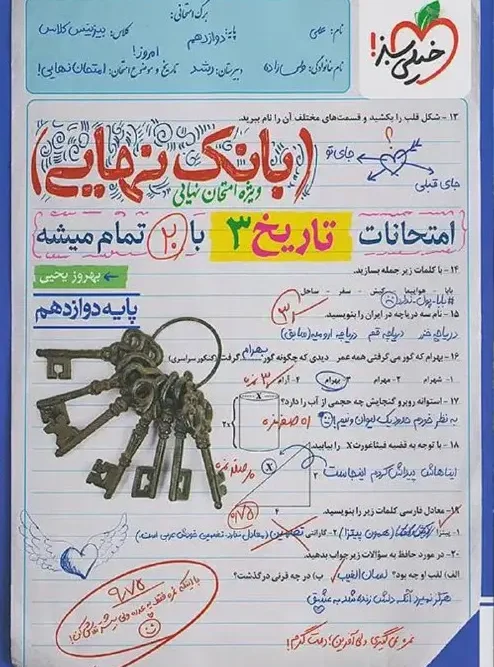 برگ امتحانی:
نام: علی
پایه: دوازدهم
کلاس: بیزینس کلاس
امروز!
نام خانوادگی:
دبیرستان: رشد
تاریخ و موضوع امتحان: امتحان نهایی!
خیلی سبز!
۱۳- شکل قلب را بکشید و قسمت‌های مختلف آن را نام ببرید.
جای تو
جای قبلی
(بانک نهایی)
ویژه امتحان نهایی
امتحانات تاریخ ۳ با ۲۰ تمام میشه
۱۴- با کلمات زیر جمله بسازید.
بهروز یحیی
بابا - هواپیما - کیش - سفر - ساحل
#بابا_پول_نداره
پایه دوازدهم
۱۵- نام سه دریاچه در ایران را بنویسید.
۳
دریاچه خزر دریاچه قم دریاچه ارومیه (سابق)
۱۶- بهرام که گور می گرفتی همه عمر دیدی که چگونه گور بهرام گرفت (کنکور سراسری)
۱- شهرام ۲- مهرام ۳- بهرام ۴- آرام
۳ نمره
۱۷- استوانه روبرو گنجایش چه حجمی از آب را دارد؟
X
۲x
به نظر خودم حدود یک لیوان و نیم!
۱۸- با توجه به قضیه فیثاغورث X را بیابید.
X
۲
۴
ایناهاش پیداش کردم اینجاست
۱۹- معادل فارسی کلمات زیر را بنویسید.
۰/۷۵
۱- پیتزا (همون پیتزا) ۲- گارانتی تضمین
۲۰- در مورد حافظ به سؤالات زیر جواب بدهید.
الف) لقب او چه بود؟ لسان الغیب ب) در چه قرنی درگذشت؟
هرگز نمیرد آنکه دلش زنده شد به عشق
۹/۷۵